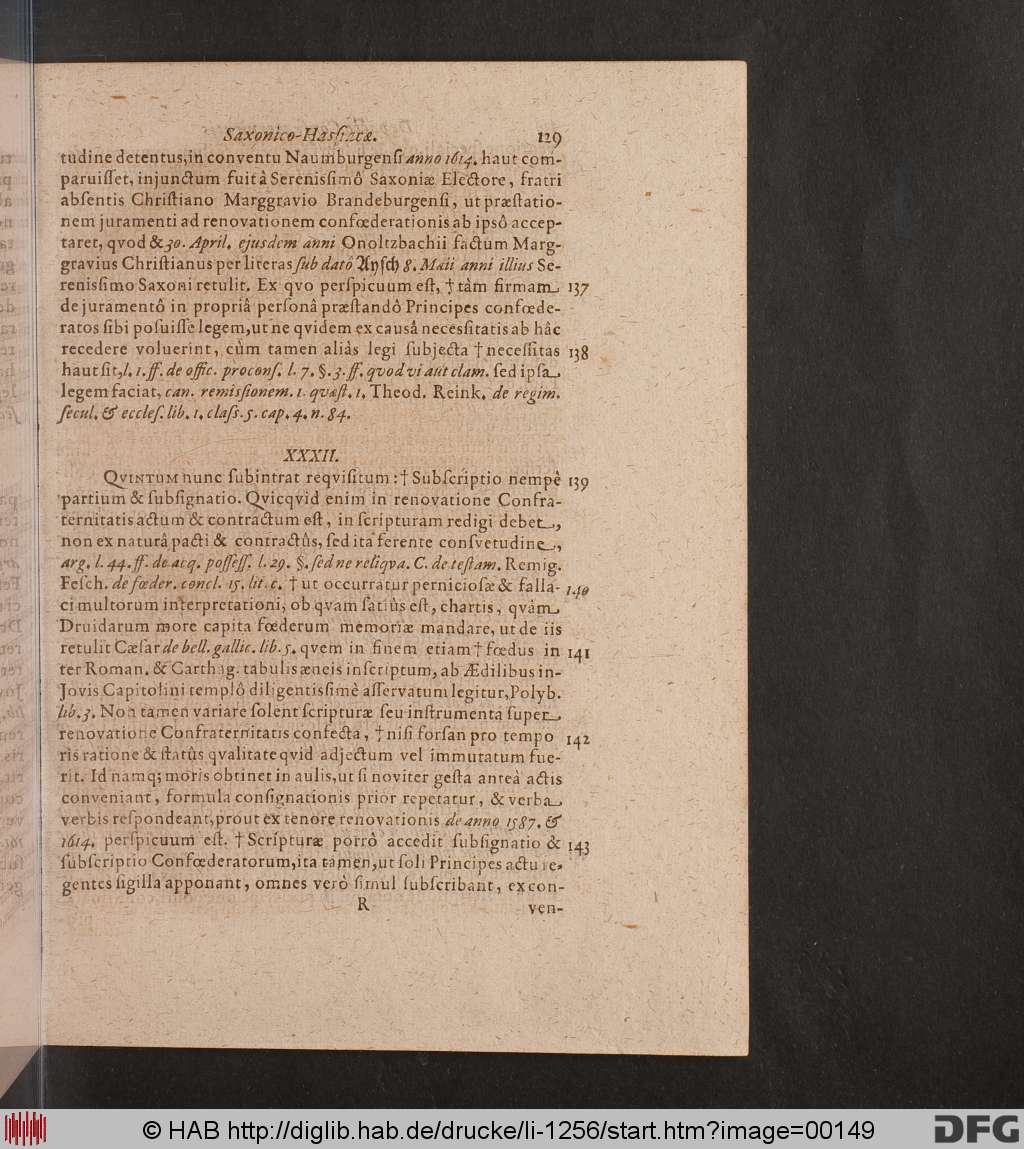 Saxonico-Hassiacæ. 129
tudine detentus, in conventu Naumburgensi anno 1614. haut com-
paruisset, injunctum fuit â Serenissimô Saxoniæ Electore, fratri
absentis Christiano Marggravio Brandeburgensi, ut præstatio-
nem juramenti ad renovationem confœderationis ab ipsô accep-
taret, qvod & 30. April. ejusdem anni Onoltzbachii factum Marg-
gravius Christianus per literas sub datô Aysch 8. Maii anni illius Se-
renissimo Saxoni retulit. Ex qvo perspicuum est, † tàm firmam 137
de juramentô in propriâ personâ præstandô Principes confœde-
ratos sibi posuisse legem, ut ne qvidem ex causâ necessitatis ab hâc
recedere voluerint, cùm tamen aliàs legi subjecta † necessitas 138
haut sit, l. 1. ff. de offic. procons. l. 7. §. 3. ff. qvod vi aut clam. sed ipsa
legem faciat, can. remissionem. 1. quæst. 1. Theod. Reink. de regim.
secul. & eccles. lib. 1. class. 5. cap. 4. n. 84.
XXXII.
QVINTUM nunc subintrat reqvisitum: † Subscriptio nempè 139
partium & subsignatio. Qvicqvid enim in renovatione Confra-
ternitatis actum & contractum est, in scripturam redigi debet,
non ex naturâ pacti & contractûs, sed ita ferente consvetudine,
arg. l. 44. ff. de acq. possess. l. 29. §. sed ne reliqva. C. de testam. Remig.
Fesch. de fœder. concl. 15. lit. c. † ut occurratur perniciosæ & falla- 140
ci multorum interpretationi, ob qvam satiùs est, chartis, qvàm
Druidarum more capita fœderum memoriæ mandare, ut de iis
retulit Cæsar de bell. gallic. lib. 5. qvem in finem etiam † fœdus in 141
ter Roman. & Carthag. tabulis æneis inscriptum, ab Ædilibus in-
Jovis Capitolini templô diligentissimè asservatum legitur, Polyb.
lib. 3. Non tamen variare solent scripturæ seu instrumenta super
renovatione Confraternitatis confecta, † nisi forsan pro tempo 142
ris ratione & statûs qvalitate qvid adjectum vel immutatum fue-
rit. Id namq; moris obtinet in aulis, ut si noviter gesta anteà actis
conveniant, formula consignationis prior repetatur, & verba
verbis respondeant, prout ex tenore renovationis de anno 1587. &
1614. perspicuum est. † Scripturæ porrò accedit subsignatio & 143
subscriptio Confœderatorum, ita tamen, ut soli Principes actu re-
gentes sigilla apponant, omnes verò simul subscribant, ex con-
R ven-
© HAB http://diglib.hab.de/drucke/li-1256/start.htm?image=00149
DFG